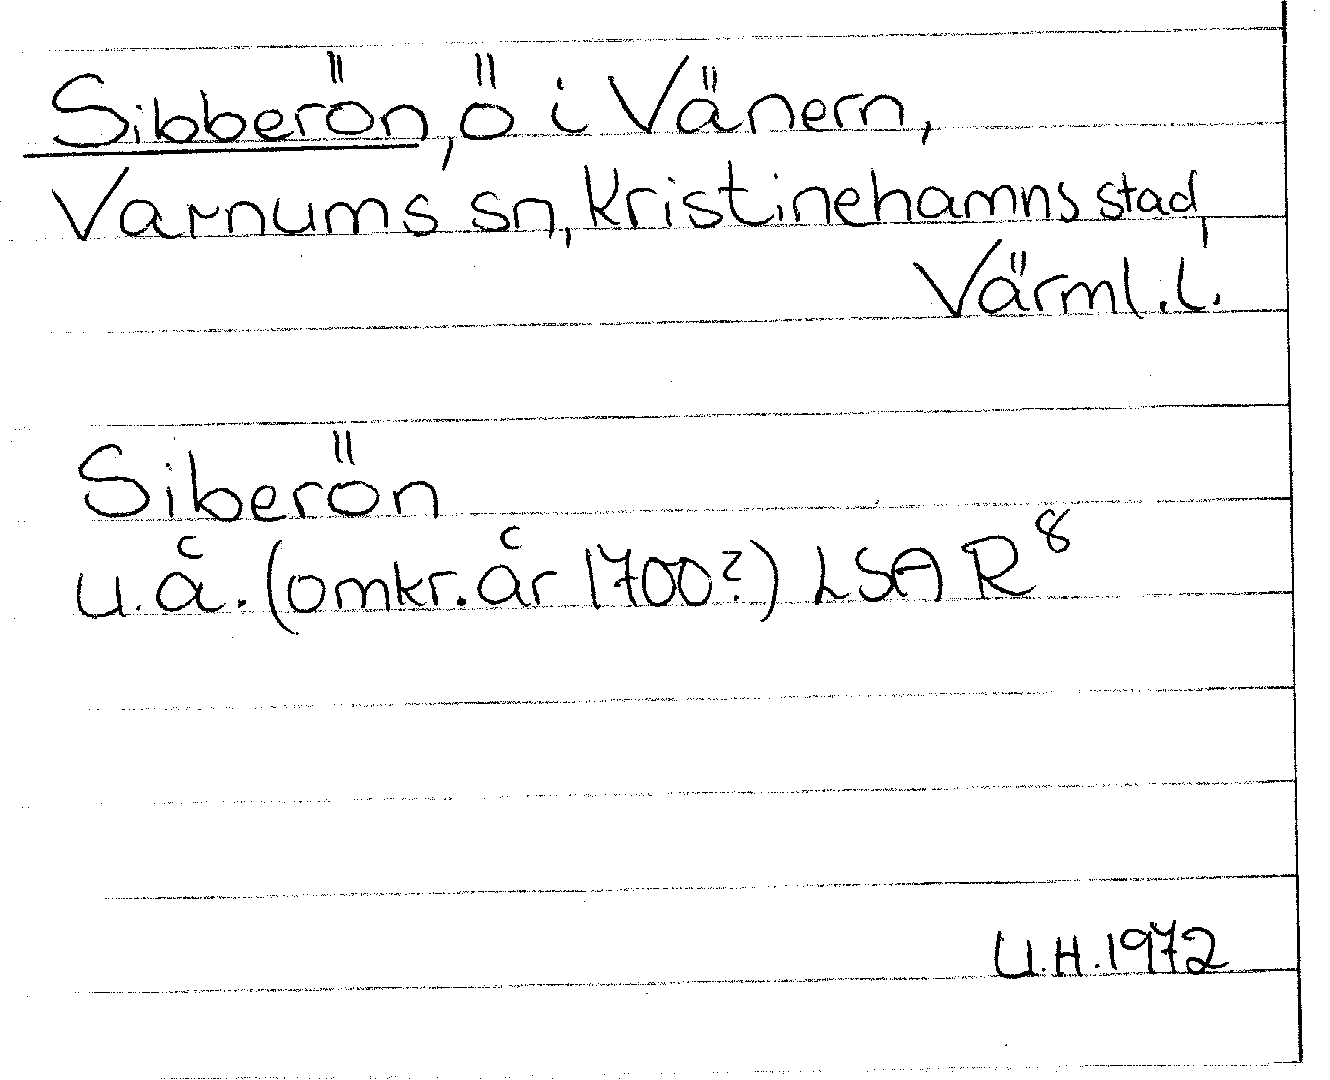 Sibberön, ö i Vänern,
Varnums sn, Kristinehamns stad,
Värml.l.
Siberön
u.å. (omkr. år 1700?) LSA R⁸
U.H. 1972